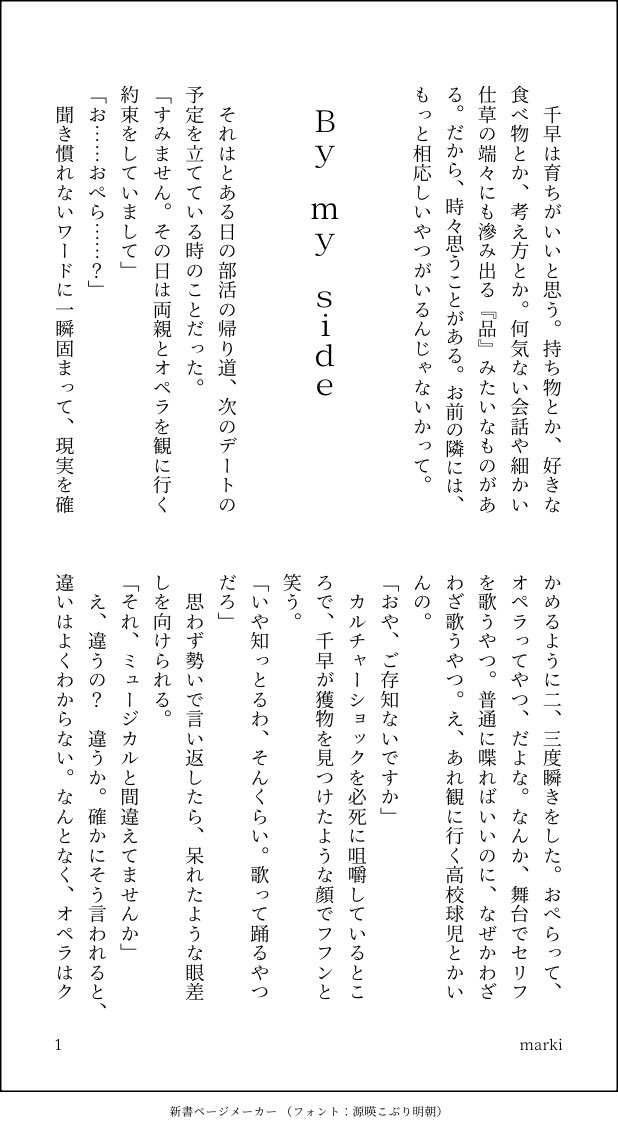 千早は育ちがいいと思う。持ち物とか、好きな
食べ物とか、考え方とか。何気ない会話や細かい
仕草の端々にも滲み出る『品』みたいなものがあ
る。だから、時々思うことがある。お前の隣には、
もっと相応しいやつがいるんじゃないかって。
By my side
それはとある日の部活の帰り道、次のデートの
予定を立てている時のことだった。
「すみません。その日は両親とオペラを観に行く
約束をしていまして」
「お……おぺら……？」
聞き慣れないワードに一瞬固まって、現実を確
かめるように二、三度瞬きをした。おぺらって、
オペラってやつ、だよな。なんか、舞台でセリフ
を歌うやつ。普通に喋ればいいのに、なぜかわざ
わざ歌うやつ。え、あれ観に行く高校球児とかい
んの。
「おや、ご存知ないですか」
カルチャーショックを必死に咀嚼しているとこ
ろで、千早が獲物を見つけたような顔でフフンと
笑う。
「いや知っとるわ、そんくらい。歌って踊るやつ
だろ」
思わず勢いで言い返したら、呆れたような眼差
しを向けられる。
「それ、ミュージカルと間違えてませんか」
え、違うの？　違うか。確かにそう言われると、
違いはよくわからない。なんとなく、オペラはク
1
marki
新書ページメーカー（フォント：源暎こぶり明朝）